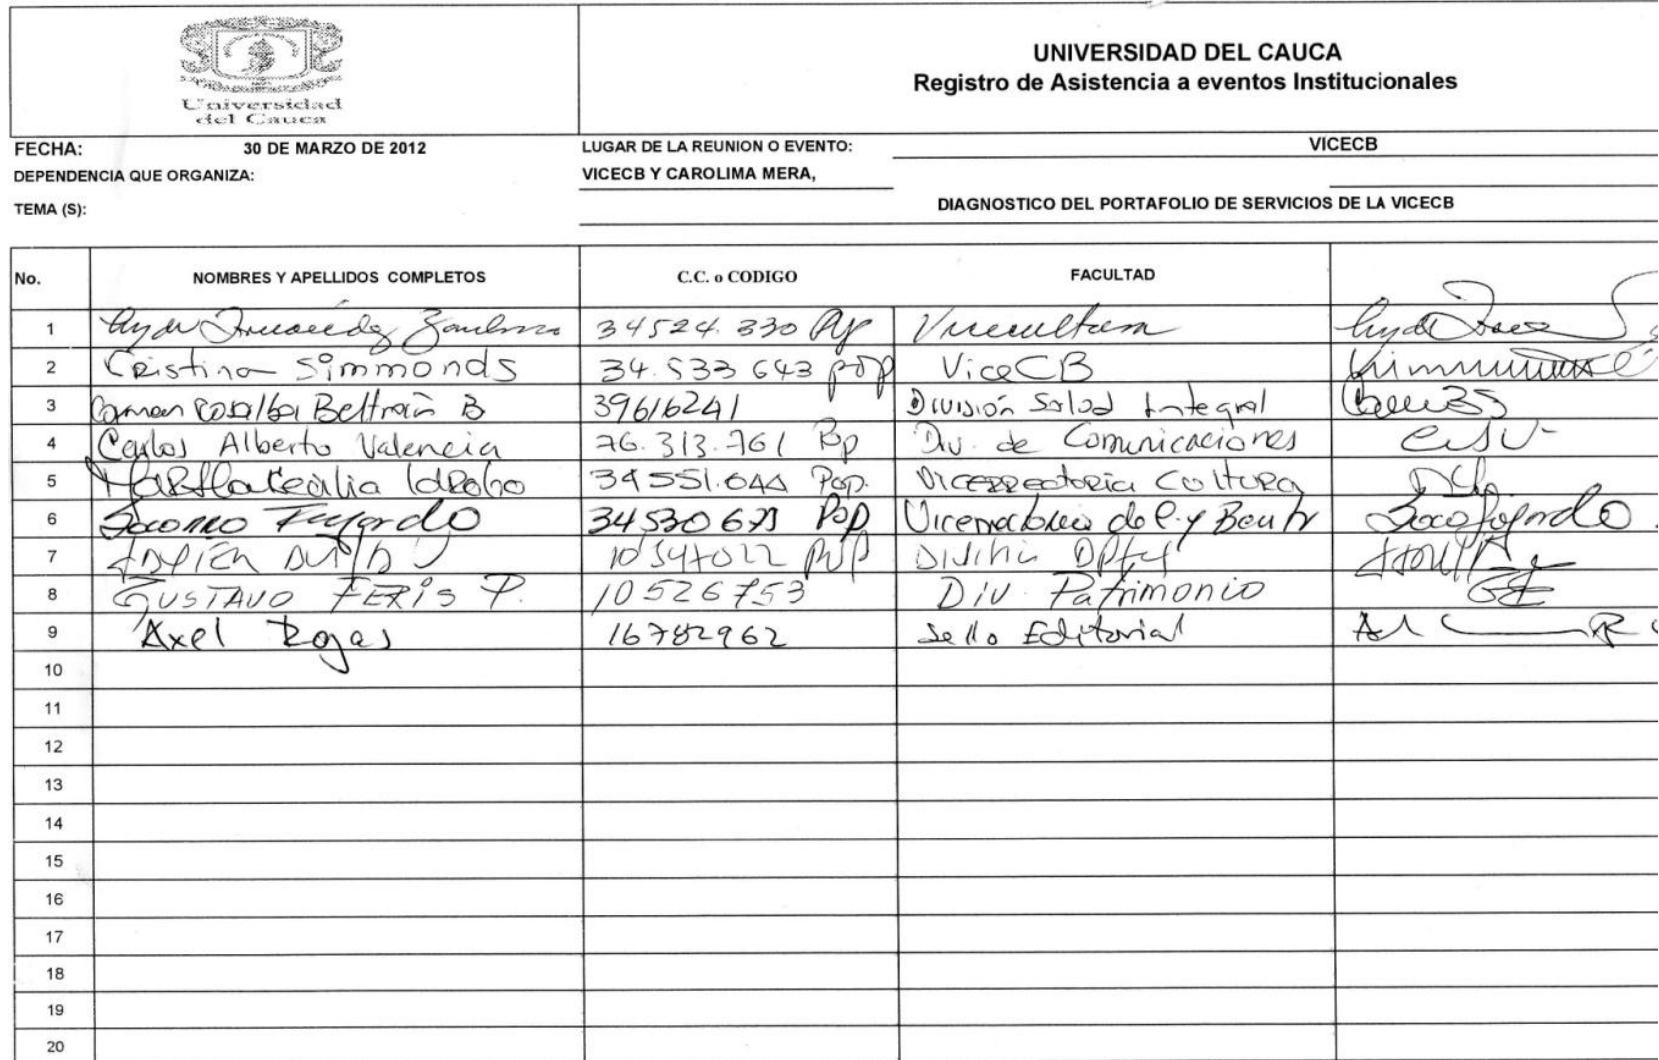 Universidad
del Cauca
UNIVERSIDAD DEL CAUCA
Registro de Asistencia a eventos Institucionales
FECHA: 30 DE MARZO DE 2012 LUGAR DE LA REUNION O EVENTO: VICECB
DEPENDENCIA QUE ORGANIZA: VICECB Y CAROLIMA MERA,
TEMA (S): DIAGNOSTICO DEL PORTAFOLIO DE SERVICIOS DE LA VICECB
No. NOMBRES Y APELLIDOS COMPLETOS C.C. o CODIGO FACULTAD
1 34524.330
2 Cristina Simmonds 34.533 643 pop ViceCB
3 Carmen Rosalba Beltrán B 39616241 División Salud Integral
4 Carlos Alberto Valencia 76.313.761 Pop Div. de Comunicaciones
5 Martha Cecilia Idrobo 34551.644 Pop. Vicerrectoria Cultura
6 Socorro Fajardo Pop
7
8 GUSTAVO FERIS P. 10526753 Div. Patrimonio
9 Axel Rojas 16782962 Sello Editorial
10
11
12
13
14
15
16
17
18
19
20